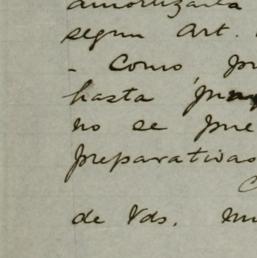 amortizarla
segun Art.
- Como
hasta
no se pue
preparativos
de Vds. mu